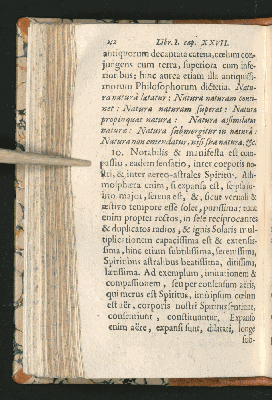 152 Libr. I. cap. XXVII.
antiquorum decantata catena, cœlum con-
jungens cum terra, superiora cum infe-
rioribus; hinc aurea etiam illa antiquissi-
morum Philosophorum dicteria. Natu-
ra naturâ lætatur: Natura naturam conti-
net: Natura naturam superat: Natura
propinquat naturæ: Natura assimilatur
naturæ: Natura submergitur in natura:
Natura non emendatur, nisi sua natura, &c.
10. Notabilis & manifesta est com-
passio, eadem sensatio, inter corporis no-
stri, & inter aereo-astrales Spiritus. At-
mosphæra enim, si expansa est, in plani-
tio major, serena est, & sicut vernali &
æstivo tempore esse solet, purissima; tunc
enim propter rectos, in sese reciprocantes
& duplicatos radios, & ignis Solaris mul-
tiplicationem capacissima est & extensis-
sima, hinc etiam subtilissima, serenissima,
Spiritibus astralibus beatissima, ditissima,
lætissima. Ad exemplum, imitationem &
compassionem, semper confensum aëris,
qui merus est Spiritus, imo ipsum cœlum
est aër, corporis nostri Spiritus sentiunt,
consentiunt, constituuntur. Expanso
enim aëre, expansi sunt, dilatati, longè
sub-